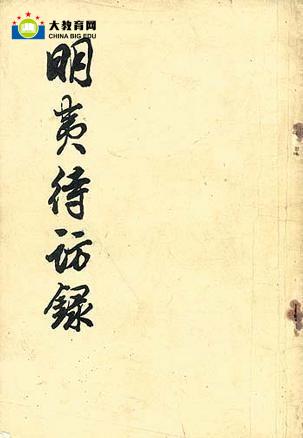 大教育网
CHINA BIG EDU
明夷待访録